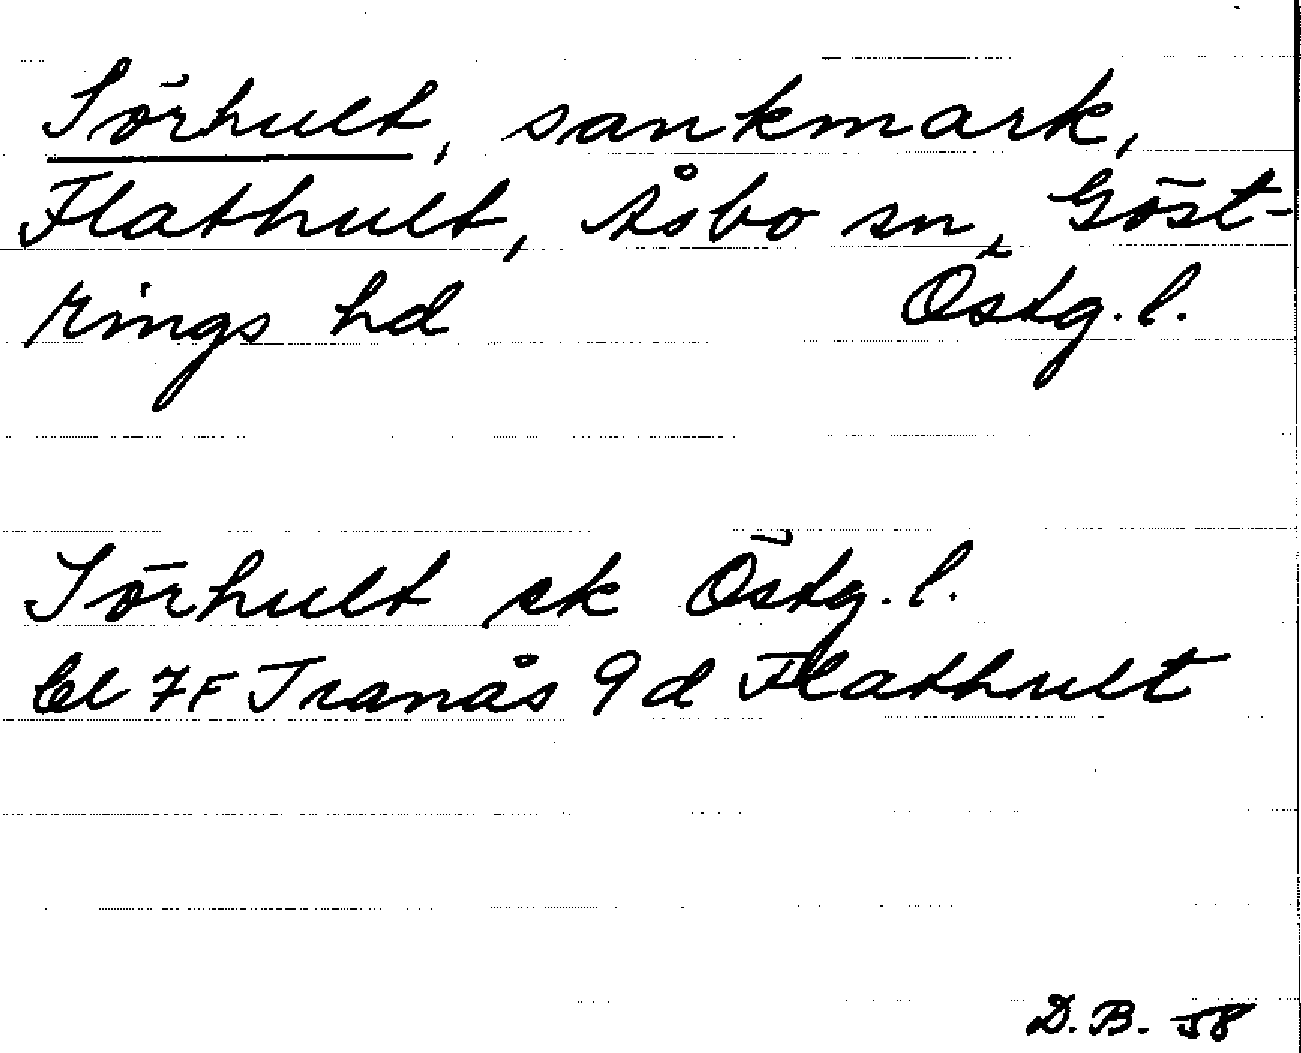 Sörhult, sankmark,
Flathult, Åsbo sn, Göst-
rings hd Östg. l.
Sörhult ek Östg. l.
bl 7F Tranås 9d Flathult
D.B. 58